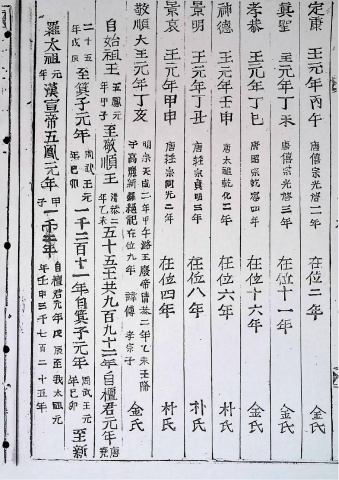 定康 王元年丙午 唐僖宗光啓二年 在位二年 金氏
眞聖 王元年丁未 唐僖宗光啓三年 在位十一年 金氏
孝恭 王元年丁巳 唐昭宗乾寧四年 在位十六年 金氏
神德 王元年壬申 唐太祖乾化二年 在位六年 朴氏
景明 王元年丁丑 唐廷宗貞明三年 在位八年 朴氏
景哀 王元年甲申 唐莊宗同光二年 在位四年 朴氏
敬順大王元年丁亥 明宗天成二年 潞王廢帝清泰二年乙未王降于高麗 在位九年 諱傅 孝宗子 金氏
自始祖王元年甲子 五鳳元 至敬順王 清泰二年乙未 五十五王共九百九十二年自檀君元年 唐堯
二十五年戊辰 至箕子元年 周武王元年己卯 一千二百十一年自箕子元年 周武王元年己卯 至新
羅太祖元年 漢宣帝五鳳元年 甲子 一千 年 自檀君元年戊辰至我太祖元年壬申三千七百二十五年